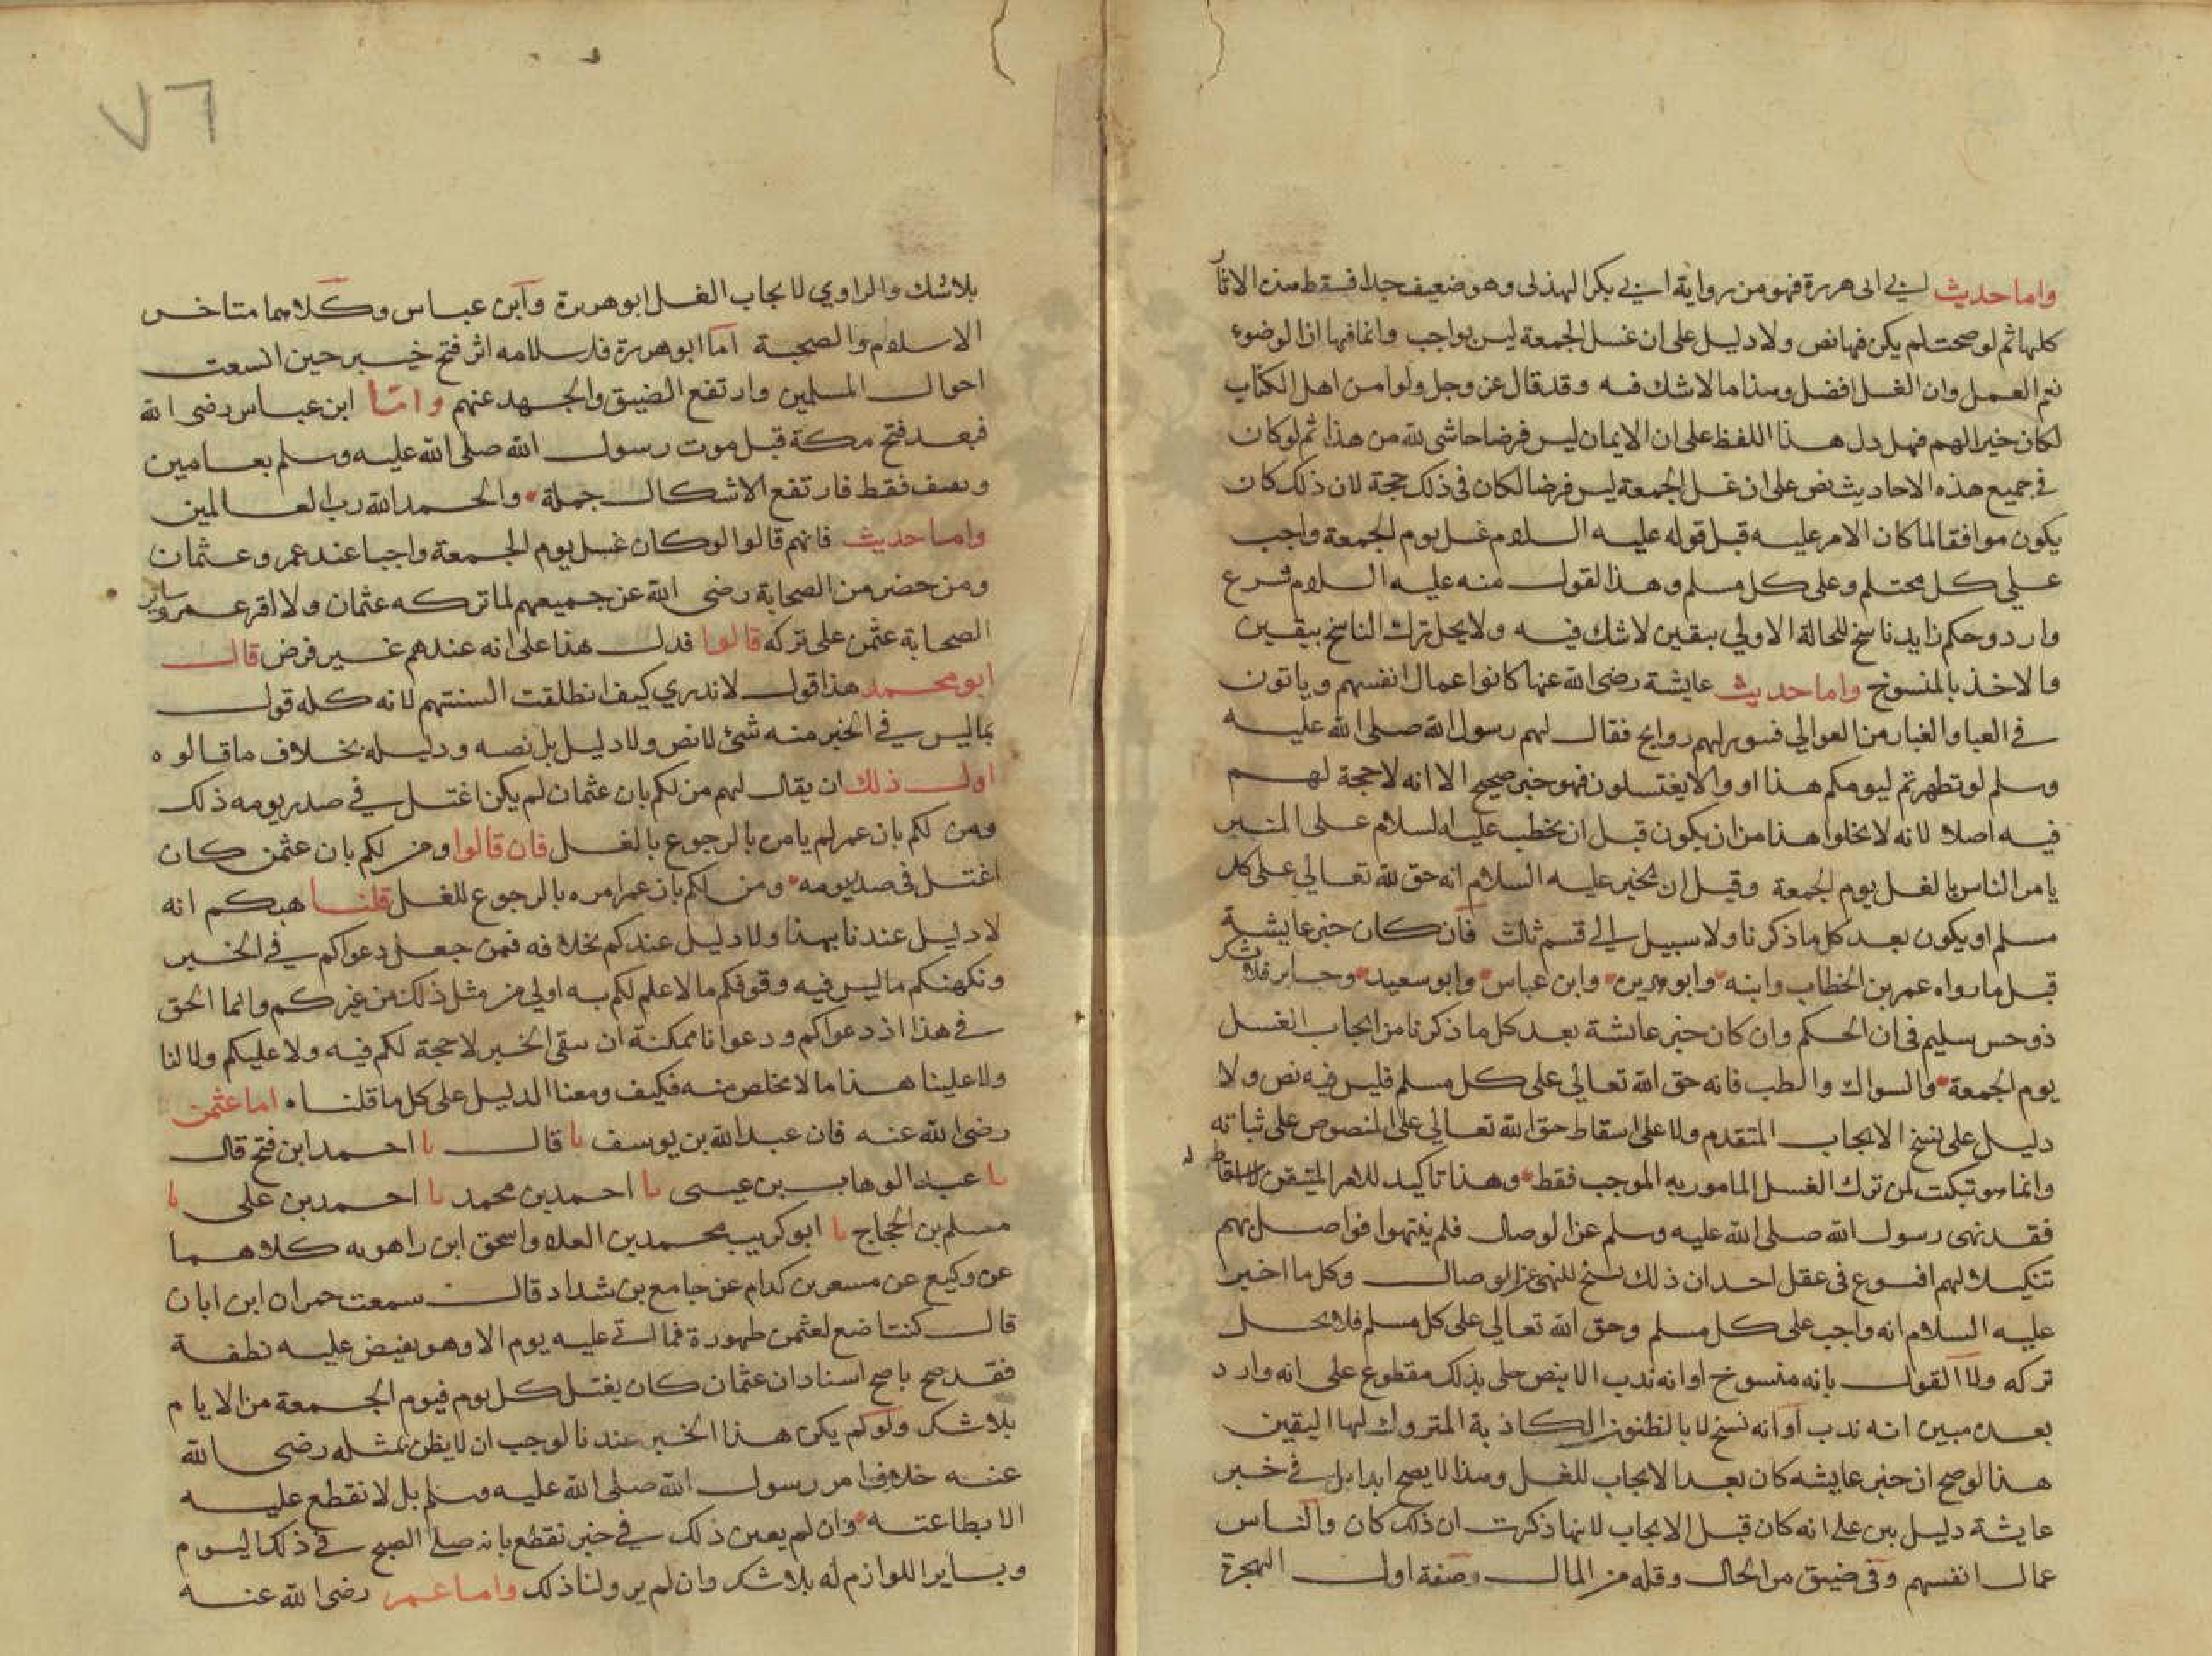 واما حديث ابي هريرة فهو من رواية ابي بكر الهذلي وهو ضعيف جدا فسقط هذه الاثار
كلها ثم لو صحت لم يكن فيها نص ولا دليل على ان غسل الجمعة ليس بواجب وانما فيها ان الوضوء
نعم العمل وان الغسل افضل وهذا ما لا شك فيه وقد قال عز وجل ولو امن اهل الكتاب
لكان خيرا لهم فهل دل هذا اللفظ على ان الايمان ليس فرضا حاشى لله من هذا ثم لو كان
في جميع هذه الاحاديث نص على ان غسل الجمعة ليس فرضا لكان في ذلك حجة لان ذلك كان
يكون موافقا لما كان الامر عليه قبل قوله عليه السلام غسل يوم الجمعة واجب
على كل محتلم وعلى كل مسلم وهذا القول منه عليه السلام شرع
وارد وحكم زايد ناسخ للحالة الاولي بيقين لا شك فيه ولا يحل ترك الناسخ بيقين
والاخذ بالمنسوخ واما حديث عايشة رضي الله عنها كانوا عمال انفسهم وياتون
في العبا والغبار من العوالي فتنور لهم روايح فقال لهم رسول الله صلى الله عليه
وسلم لو تطهرتم ليومكم هذا او والا يغتسلون فهو خبر صحيح الا انه لا حجة لهم
فيه اصلا لانه لا يخلوا هذا من ان يكون قبل ان يخطب عليه السلام على المنبر
يامر الناس بالغسل يوم الجمعة وقبل ان يخبر عليه السلام انه حق لله تعالي على كل
مسلم او يكون بعد كل ما ذكرنا ولا سبيل الي قسم ثالث فان كان خبر عايشة
قبل ما رواه عمر بن الخطاب وابنه وابو هريره وابن عباس وابو سعيد وجابر فلا يشك
ذو حس سليم في ان الحكم وان كان خبر عائشة بعد كل ما ذكرنا من ايجاب الغسل
يوم الجمعة والسواك والطب فانه حق الله تعالي على كل مسلم فليس فيه نص ولا
دليل على نسخ الايجاب المتقدم ولا على اسقاط حق الله تعالي على المنصوص على ثباته
وانما هو تبكت لمن ترك الغسل المامور به الموجب فقط وهذا تاكيد للامر المتيقن لا اسقاط له
فقد نهى رسول الله صلى الله عليه وسلم عن الوصال فلم ينتهوا فواصل بهم
تنكيلا لهم افسوغ في عقل احد ان ذلك نسخ للنهي عن الوصال وكل ما اخبر
عليه السلام انه واجب على كل مسلم وحق الله تعالي على كل مسلم فلا يحل
تركه ولا القول بانه منسوخ او انه ندب الا بنص جلي بذلك مقطوع على انه وارد
بعده مبين انه ندب او انه نسخ لا بالظنون الكاذبة المتروك لها اليقين
هذا لو صح ان خبر عايشه كان بعد الايجاب للغسل وهذا لا يصح ابدا بل في خبر
عايشة دليل بين على انه كان قبل الايجاب لانها ذكرت ان ذلك كان والناس
عمال انفسهم وفي ضيق من الحال وقله من المال وصفة اول الهجرة
٧٦
بلا شك والراوي لايجاب الغسل ابو هريرة وابن عباس وكلاهما متاخر
الاسلام والصحبة اما ابو هريرة فاسلامه اثر فتح خيبر حين اتسعت
احوال المسلمين وارتفع الضيق والجهد عنهم واما ابن عباس رضي الله
فبعد فتح مكة قبل موت رسول الله صلى الله عليه وسلم بعامين
ونصف فقط فارتفع الاشكال جملة والحمد لله رب العالمين
واما حديث فانهم قالوا لو كان غسل يوم الجمعة واجبا عند عمر وعثمان
ومن حضر من الصحابة رضي الله عن جميعهم لما تركه عثمان ولا اقر عمر وسائر
الصحابة عثمن على تركه قالوا فدل هذا على انه عندهم غير فرض قال
ابو محمد هذا قول لا ندري كيف انطلقت السنتهم لانه كله قول
بما ليس في الخبر منه شئ لا نص ولا دليل بل نصه ودليله بخلاف ما قالوه
اول ذلك ان يقال لهم من لكم بان عثمان لم يكن اغتسل في صدر يومه ذلك
ومن لكم بان عمر لم يامره بالرجوع بالغسل فان قالوا ومن لكم بان عثمن كان
اغتسل في صدر يومه ومن لكم بان عمر امره بالرجوع للغسل قلنا هبكم انه
لا دليل عندنا بهذا ولا دليل عندكم بخلافه فمن جعل دعواكم في الخبر
وتكهنكم ما ليس فيه وقوفكم ما لا علم لكم به اولي من مثل ذلك من غيركم وانما الحق
في هذا اذ دعواكم ودعوانا ممكنة ان يبقى الخبر لا حجة لكم فيه ولا عليكم ولا لنا
ولا علينا هذا ما لا مخلص منه فكيف ومعنا الدليل على كل ما قلناه اما عثمن
رضي الله عنه فان عبد الله بن يوسف نا قال نا احمد ابن فتح قال
نا عبد الوهاب بن عيسى نا احمد بن محمد نا احمد بن علي نا
مسلم بن الحجاج نا ابو كريب محمد بن العلا واسحق ابن راهويه كلاهما
عن وكيع عن مسعر بن كدام عن جامع بن شداد قال سمعت حمران ابن ابان
قال كنت اضع لعثمن طهورة فما اتى عليه يوم الا وهو يفيض عليه نطفة
فقد صح باصح اسناد ان عثمان كان يغتسل كل يوم فيوم الجمعة من الايام
بلا شك ولو لم يكن هذا الخبر عندنا لوجب ان لا يظن بمثله رضي الله
عنه خلاف امر رسول الله صلى الله عليه وسلم بل لا نقطع عليه
الا بطاعته وان لم يعين ذلك في خبر نقطع بانه صلى الصبح في ذلك اليوم
وبساير اللوازم له بلا شك وان لم يرو لنا ذلك واما عمر رضي الله عنه